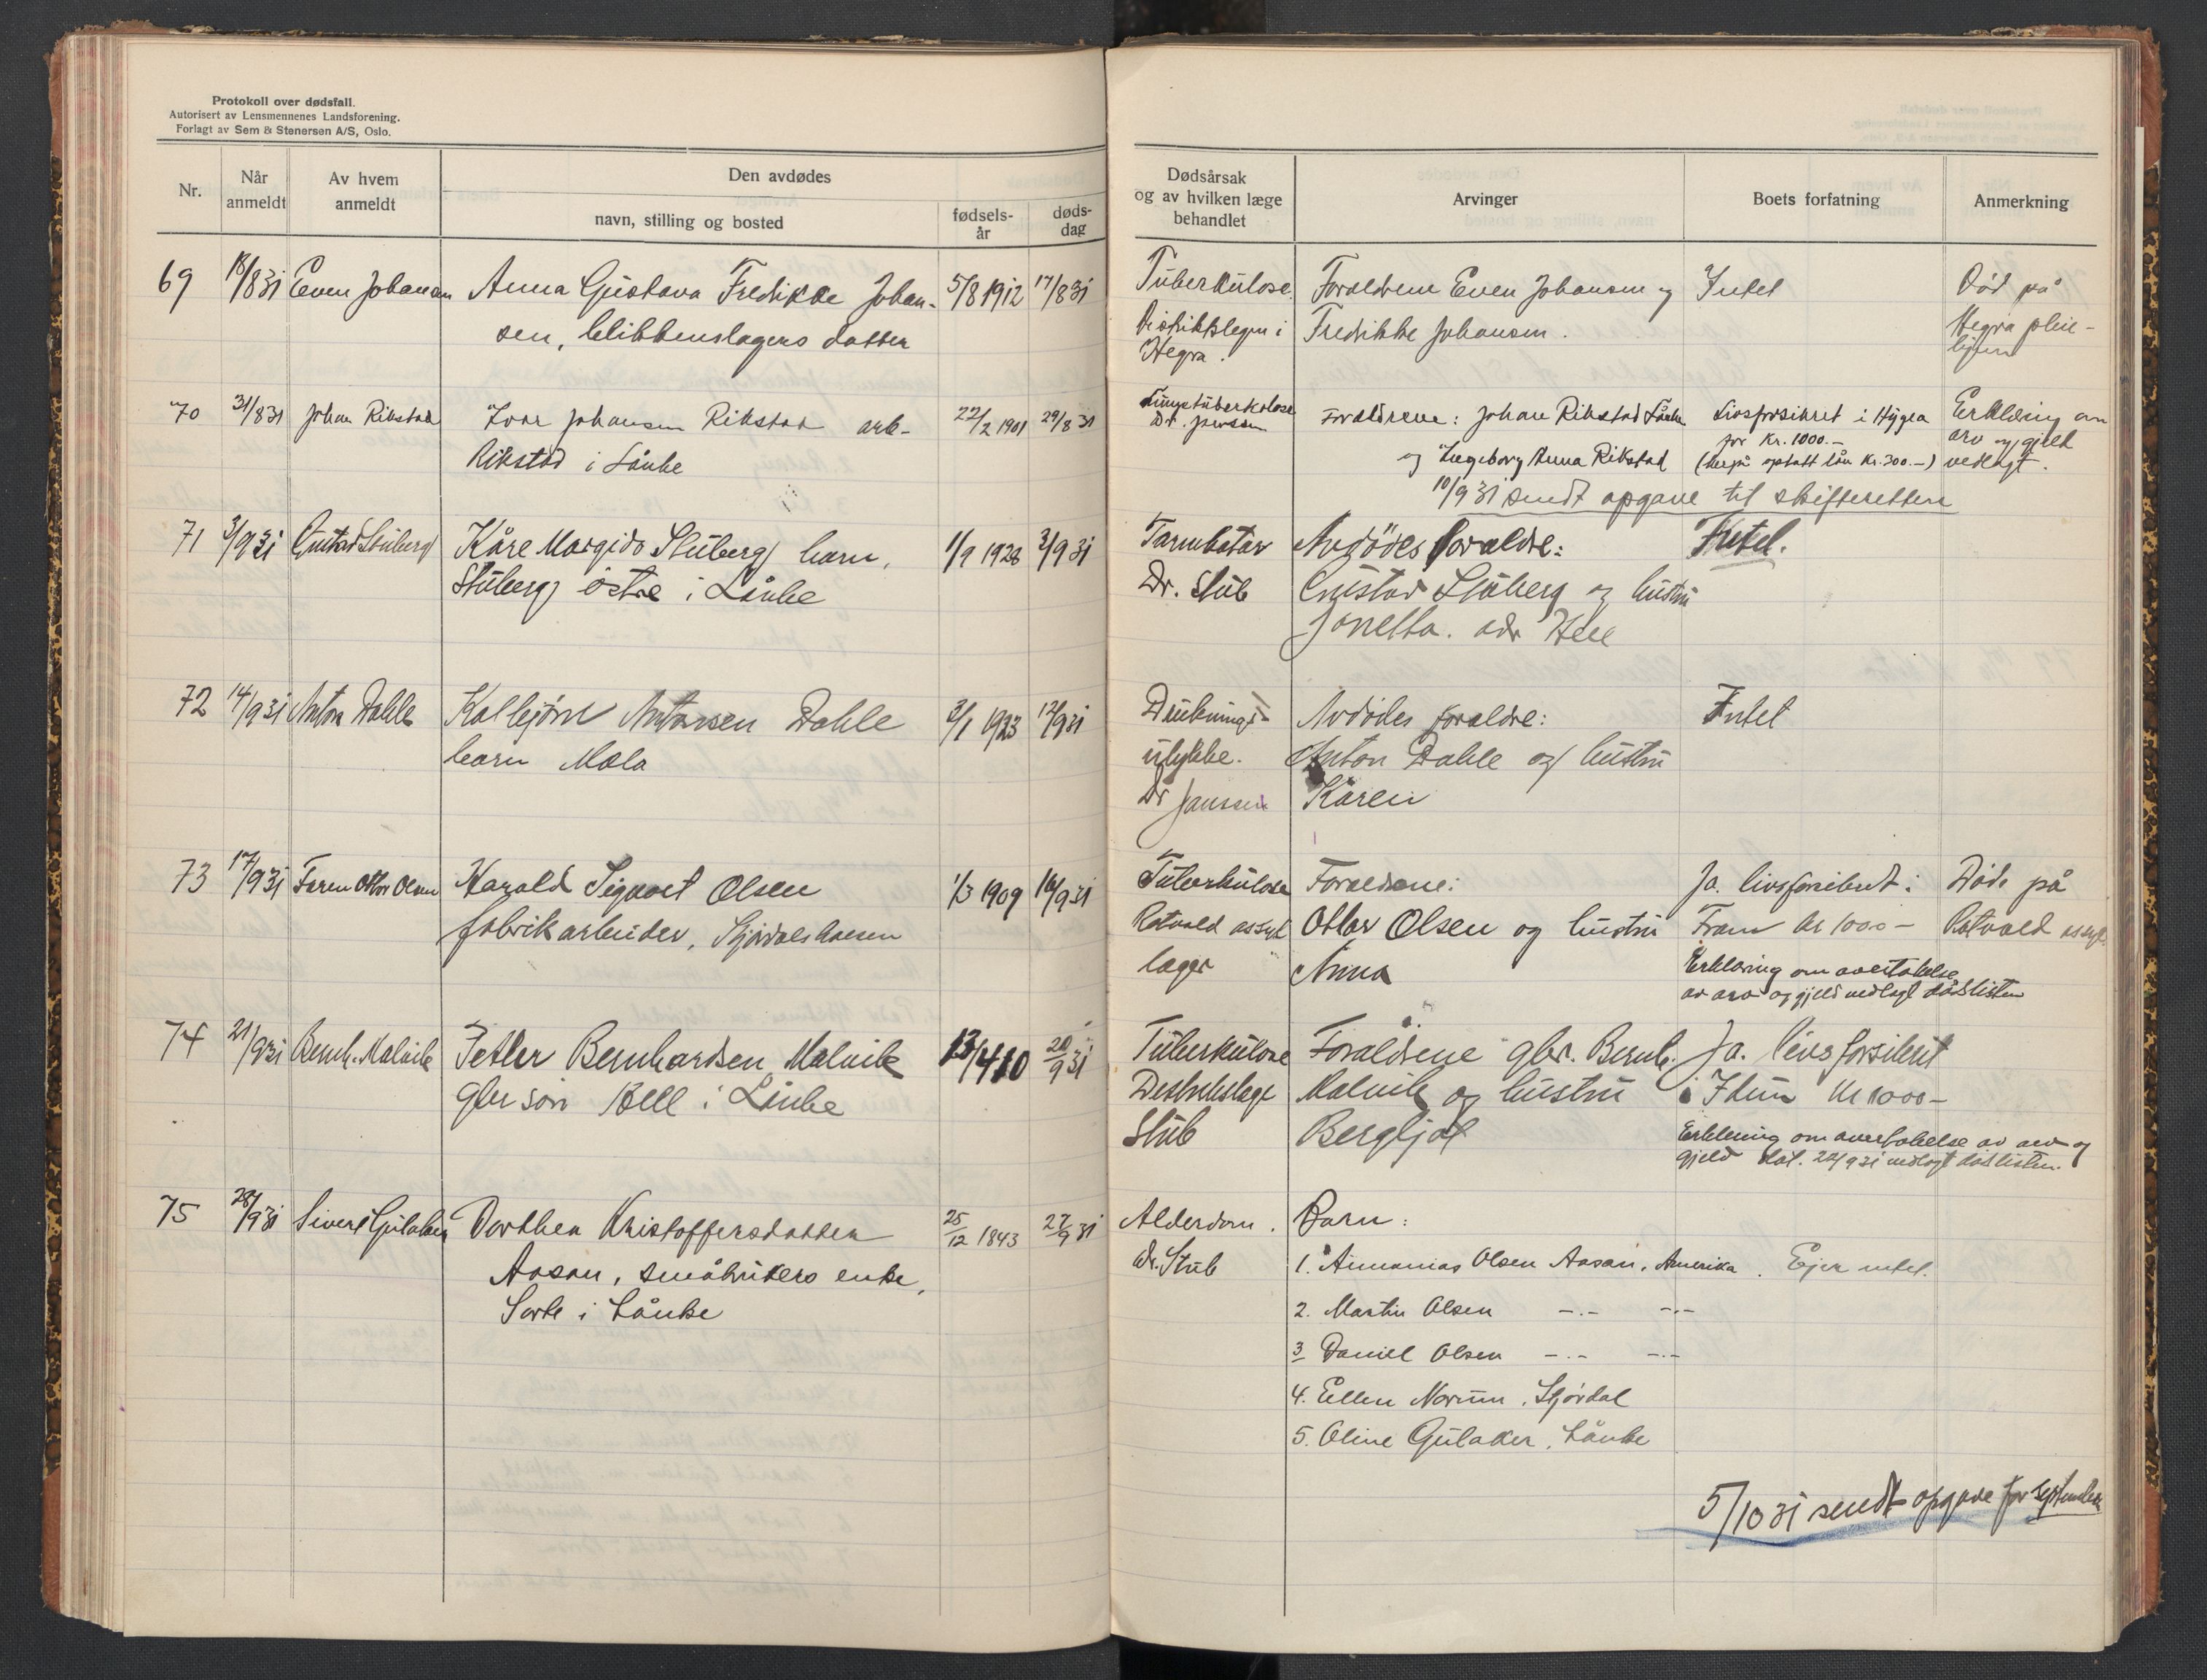 Protokoll over dødsfall.
Autorisert av Lensmennenes Landsforening.
Forlagt av Sem & Stenersen A/S, Oslo.
Nr.
Når anmeldt
Av hvem anmeldt
Den avdødes
navn, stilling og bosted
fødsels-år
døds-dag
Dødsårsak og av hvilken læge behandlet
Arvinger
Boets forfatning
Anmerkning
69 18/8 31 Even Johansen Anna Gustava Fredikke Johan- 5/8 1912 17/8 31 Tuberkulose Foreldrene Even Johansen og Intet Død på
sen, datter Distriktslegen i Fredikke Johansen. Hegra pleie-
Hegra. hjem
70 31/8 31 Johan Rikstad Ivar Johansen Rikstad arb- 22/2 1901 29/8 31 Lungetuberkolose Foreldrene: Johan Rikstad Lånke Livsforsikret i Hygea Erklæring om
Rikstad i Lånke Dr. og Ingeborg Anna Rikstad for Kr. 1000.- arv og gjeld
(herpå optatt lån Kr. 300.-) vedlagt.
10/9 31 sendt opgave til skifteretten
71 3/9 31 Gustav Stuberg Kåre Margido Stuberg barn, 1/9 1928 3/9 31 Tarmkatar Avdødes foreldre: Intet.
Stuberg østre i Lånke Dr. Stub Gustav Stuberg og hustru
Jonetta. adr Hell
72 14/9 31 Anton Dahle Kolbjørn Antonsen Dahle 3/1 1923 12/9 31 Druknings- Avdødes foreldre: Intet
barn Mæla ulykke. Anton Dahle og hustru
Dr Janssen Karen
73 17/9 31 Faren Ottar Olsen Harald Sigvart Olsen 1/3 1909 16/9 31 Tuberkulose Foreldrene: Ja. livsforsikret i Døde på
fabrikarbeider, Stjørdalshalsen Rotvold assyl Ottar Olsen og hustru Fram kr 1000- Rotvold assyl.
læger Anna Erklæring om overtakelse
av arv og gjeld vedlagt dødslisten
74 21/9 31 Bernh. Malvik Petter Bernhardsen Malvik 13/4 10 20/9 31 Tuberkulose Foreldrene gbr. Bernh. Ja. livsforsikret
gbr søn Hell i Lånke Distriktslæge Malvik og hustru i Idun kr 1000-
Stub Bergljot Erklæring om overtakelse av arv og
gjeld dat. 22/9 31 vedlagt dødslisten.
75 28/9 31 Sivert Gulaker Dorthea Kristoffersdatter 25/12 1843 27/9 31 Alderdom. Barn:
Aasan, småbrukers enke, Dr. Stub 1. Annanias Olsen Aasan, Amerika. Ejer intet.
i Lånke 2. Martin Olsen -.- -.-
3 Daniel Olsen -.- -.-
4. Ellen Norum, Stjørdal
5. Oline Gulaker, Lånke
5/10 31 sendt opgave for september